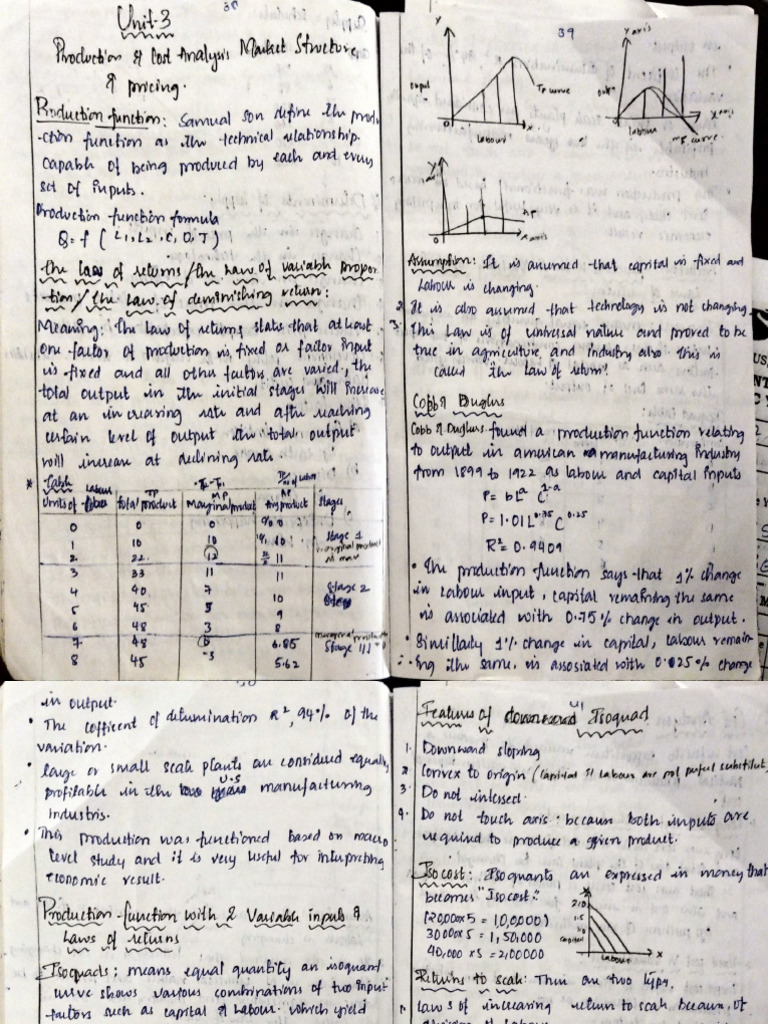 38
Unit-3
Production & Cost Analysis Market Structure
& pricing.
Production function: Samual son define the produ
-ction function as the technical relationship
capable of being produced by each and every
set of inputs.
Production function formula
Q = f (L1, L2, C, O, T)
The law of returns/the Law of variable propor
tion/the Law of deminishing return:
Meaning: The law of returns stats that atleast
one factor of production is fixed or factor input
is fixed and all other factors are varied, the
total output in the initial stages will increase
at an increasing rate and after reaching
certain level of output the total output
will increase at declining rate.
* Table
Labour TP MP AP
Units of Total product Marginal product Avg product Stages
0 0 0 0
1 10 10 10 Stage 1
2 22 12 11
3 33 11 11
4 40 7 10 Stage 2
5 45 5 9
6 48 3 8
7 48 0 6.85 Stage III
8 45 -3 5.62
39
Y
output
TP curve
0 labour X
Y axis
X axis
0 labour
MP curve
Y
AP
0 X axis
Assumption: It is assumed that capital is fixed and
Labour is changing.
2. It is also assumed that technology is not changing.
3. This Law is of universal nature and proved to be
true in agriculture and industry also this is
called the law of return.
Cobb & Duglus
Cobb & Duglus found a production function relating
to output in american manufacturing industry
from 1899 to 1922 as labour and capital inputs
P = bLᵃ C¹⁻ᵃ
P = 1.01L⁰·⁷⁵ C⁰·²⁵
R² = 0.9409
• The production function says that 1% change
in labour input, capital remaining the same
is associated with 0.75% change in output.
• Similarly 1% change in capital, labour remain-
-ing the same, is assosiated with 0.025% change
in output.
• The cofficent of detumination R², 94% of the
variation.
• large or small scale plants are considered equally
profitable in the U.S manufacturing
industris.
• This production was functioned based on macro
level study and it is very useful for interpreting
economic result.
Production function with 2 Variable inputs &
Laws of returns
Isoquads: means equal quantity an isoquant
curve shows various combinations of two input
factors such as capital & labour which yield
Features of Isoquad
1. Downward sloping
2. Convex to origin (capital & labour are not perfect substitut)
3. Do not intersed.
4. Do not touch axis: because both inputs are
required to produce a given product.
Isocost: Isoquants an expressed in money that
becomes "Isocost."
(20,000x5 = 1,00,000)
30,000x5 = 1,50,000
40,000x5 = 2,00000
2.0
1.5
1.0
capital
labour
X
Returns to scale: Thin are two types.
1. laws of increasing return to scale because of